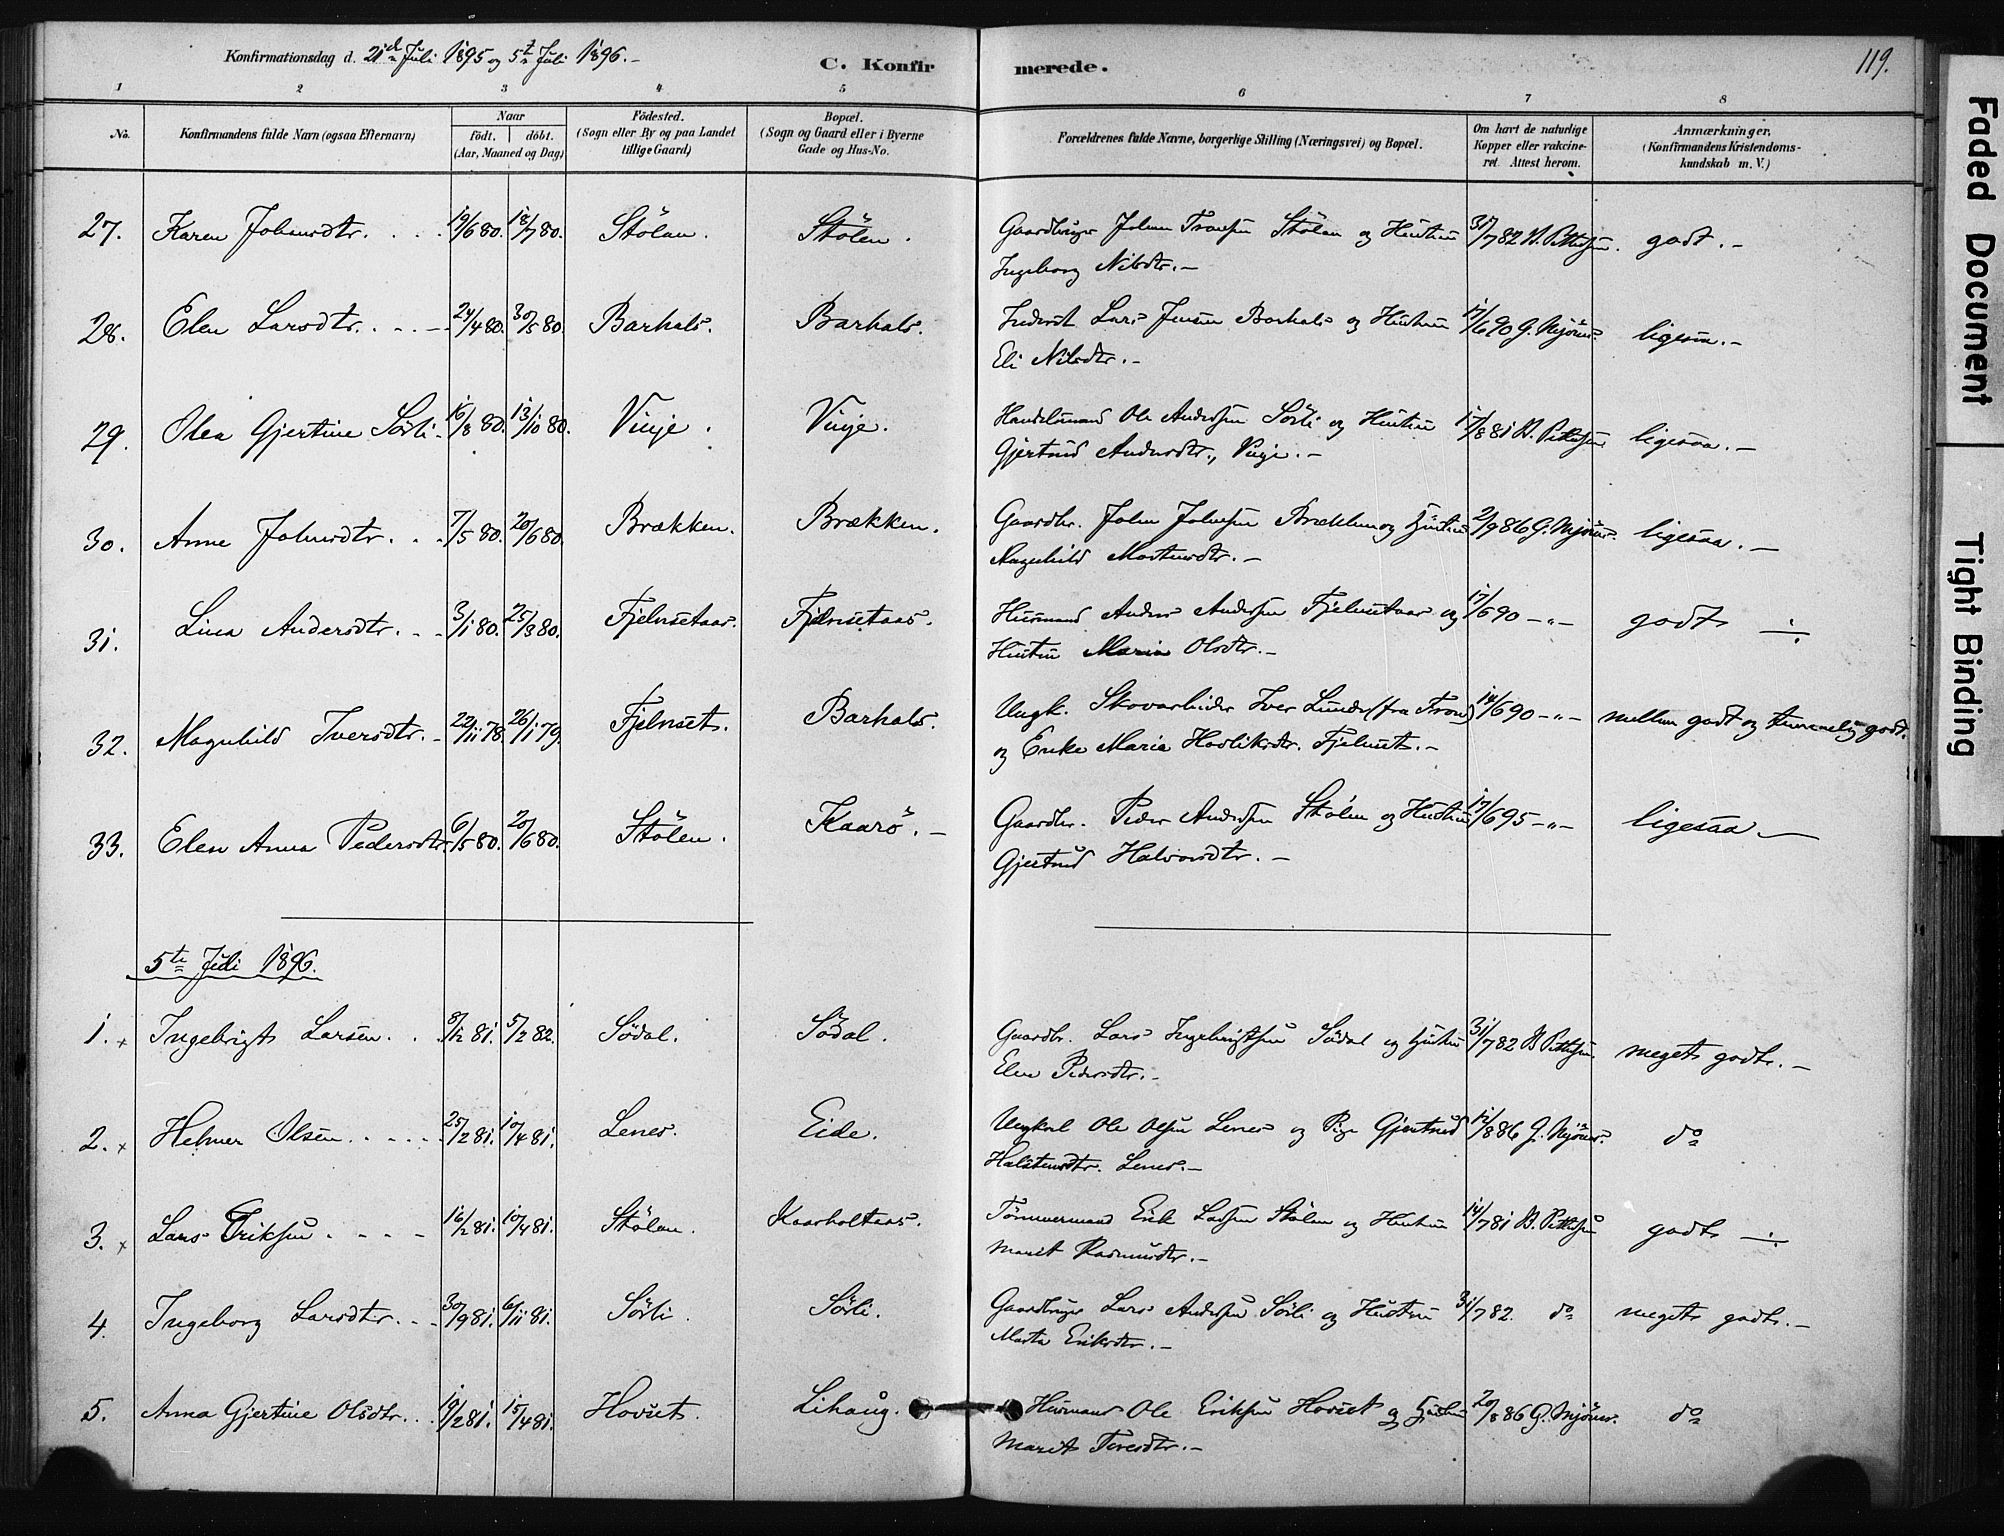 Konfirmationsdag d. 21de Juli 1895 og 5te Juli 1896.-
C. Konfirmerede.
119.
1 2 3 4 5 6 7 8
No.
Konfirmandens fulde Navn (ogsaa Efternavn)
Naar
födt. döbt.
(Aar, Maaned og Dag)
Födested.
(Sogn eller By og paa Landet
tillige Gaard)
Bopæl.
(Sogn og Gaard eller i Byerne
Gade og Hus-No.
Forældrenes fulde Navne, borgerlige Stilling (Næringsvei) og Bopæl.
Om havt de naturlige
Kopper eller vakcine-
ret. Attest herom.
Anmærkninger.
(Konfirmandens Kristendoms-
kundskab m. V.)
27. Karen Johnsdtr. 19/6 80. 18/7 80. Stölan. Stölen. Gaardbruger John Tronsen Stölan og Hustru 31/7 82 B. Pettersen. godt.-
Ingeborg Nilsdtr.-
28. Elen Larsdtr. 24/4 80. 30/5 80. Barhals. Barhals. Inderst Lars Jensen Barhals og Hustru 17/6 90 G. Mjönes. ligesaa.-
Eli Nilsdtr.-
29. Olea Gjertine Sörli. 16/8 80. 13/10 80. Vinje. Vinje. Handelsmand Ole Andersen Sörli og Hustru 17/8 81 B. Pettersen ligesaa.-
Gjertrud Andersdtr., Vinje.-
30. Anne Johnsdtr. 7/5 80. 20/6 80. Brækken. Brækken. Gaardbr. John Johnsen Brækken og Hustru 2/9 86 G. Mjönes. ligesaa.-
Ragnhild Mortensdtr.-
31. Lina Andersdtr. 3/1 80. 25/3 80. Fjelnsetaas. Fjelnsetaas. Husmand Anders Andersen Fjelnsetaas og 17/6 90 -"- godt
Hustru Maria Olsdtr.-
32. Magnhild Iversdtr. 22/11 78. 26/1 79. Fjelnset. Barhals. Ungk. Skovarbeider Iver Lunder (fra Tron) 14/6 90 -"- mellem godt og temmelig godt.
og Enke Maria Havliksdtr. Fjelnset.-
33. Elen Anna Pedersdtr. 6/5 80. 20/6 80. Stölen. Kaarö.- Gaardbr. Peder Andersen Stölen og Hustru 17/6 95 -"- ligesaa
Gjertrud Halvorsdtr.-
5te Juli 1896.
1. x Ingebrigt Larsen. 8/12 81. 5/2 82. Södal. Södal. Gaardbr. Lars Ingebrigtsen Södal og Hustru 31/7 82 B Pettersen. meget godt.-
Elen Pedersdtr.-
2. x Helmer Olsen. 25/2 81. 10/4 81. Lenes. Eide. Ungkarl Ole Olsen Lenes og Pige Gjertrud 12/8 86 G. Mjönes. do
Halstensdtr. Lenes.-
3. x Lars Eriksen. 16/2 81. 10/4 81. Stölan. Kaarholtaas. Tömmermand Erik Larsen Stölen og Hustru 14/7 81 B. Pettersen godt
Marit Rasmusdtr.-
4. Ingeborg Larsdtr. 30/9 81. 6/11 81. Sörli. Sörli. Gaardbruger Lars Andersen Sörli og Hustru 31/7 82. do meget godt.-
Marta Eriksdtr.-
5. Anna Gjertine Olsdtr. 19/2 81. 15/4 81. Hovset. Lihaug. Husmand Ole Eriksen Hovset og Hustru 20/8 86 G. Mjönes. do
Marit Toresdtr.-
Faded Document
Tight Binding